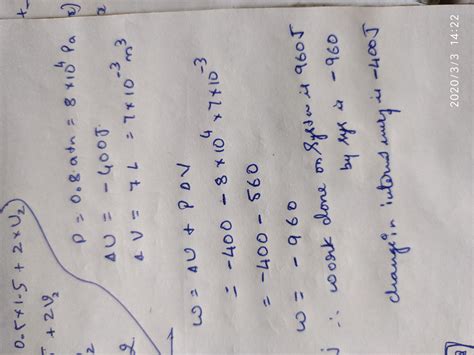 0.5×1.5 + 2×U₂
+ 2U₂
P = 0.8 atm = 8×10⁴ Pa
ΔU = -400J
ΔV = 7 L = 7×10⁻³ m³
W = ΔU + PΔV
= -400 - 8×10⁴ × 7×10⁻³
= -400 - 560
W = -960
∴ work done on system is 960J
by sys is -960
change in internal energy is -400J
2020/3/3 14:22